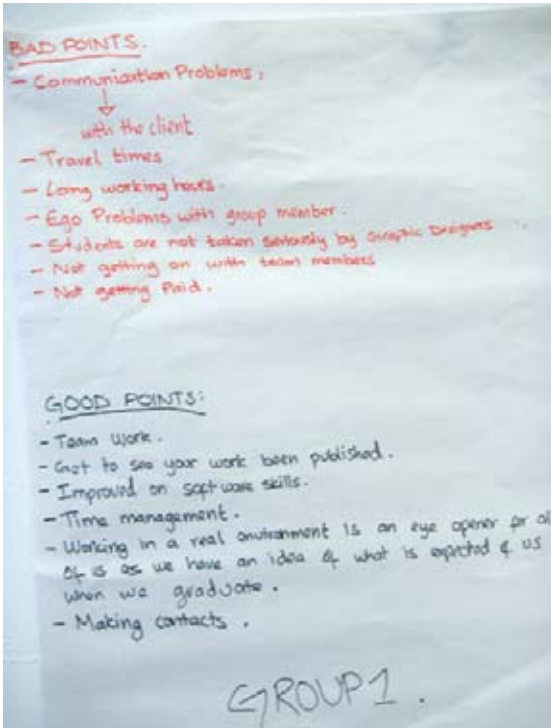 BAD POINTS.
- Communication Problems:
with the client
- Travel times
- Long working hours.
- Ego Problems with group member.
- Students are not taken seriously by Graphic Designers
- Not getting on with team members
- Not getting Paid.
GOOD POINTS:
- Team Work.
- Got to see your work been published.
- Improved on software skills.
- Time management.
- Working in a real environment is an eye opener for all
of is as we have an idea of what is expected of us
when we graduate.
- Making contacts.
GROUP 1.